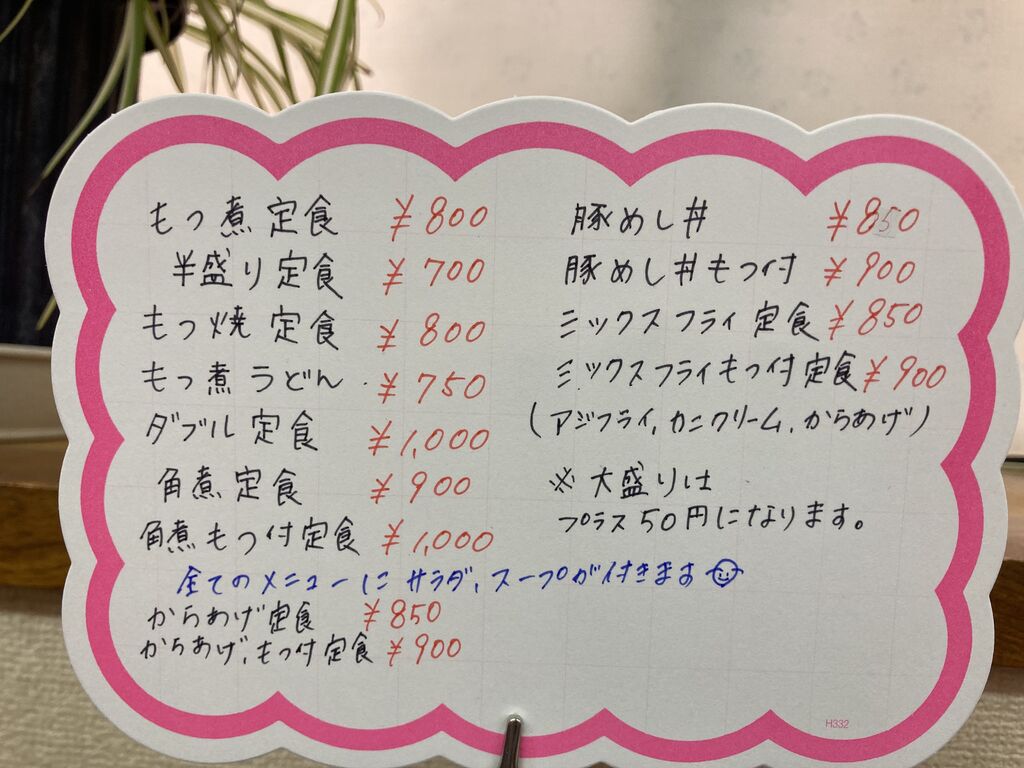 もつ煮定食 ¥800
半盛り定食 ¥700
もつ焼定食 ¥800
もつ煮うどん ¥750
ダブル定食 ¥1,000
角煮定食 ¥900
角煮もつ付定食 ¥1,000
全てのメニューにサラダ、スープが付きます
からあげ定食 ¥850
からあげ、もつ付定食 ¥900
豚めし丼 ¥850
豚めし丼もつ付 ¥900
ミックスフライ定食 ¥850
ミックスフライもつ付定食 ¥900
(アジフライ、カニクリーム、からあげ)
※大盛りは
プラス50円になります。
H332